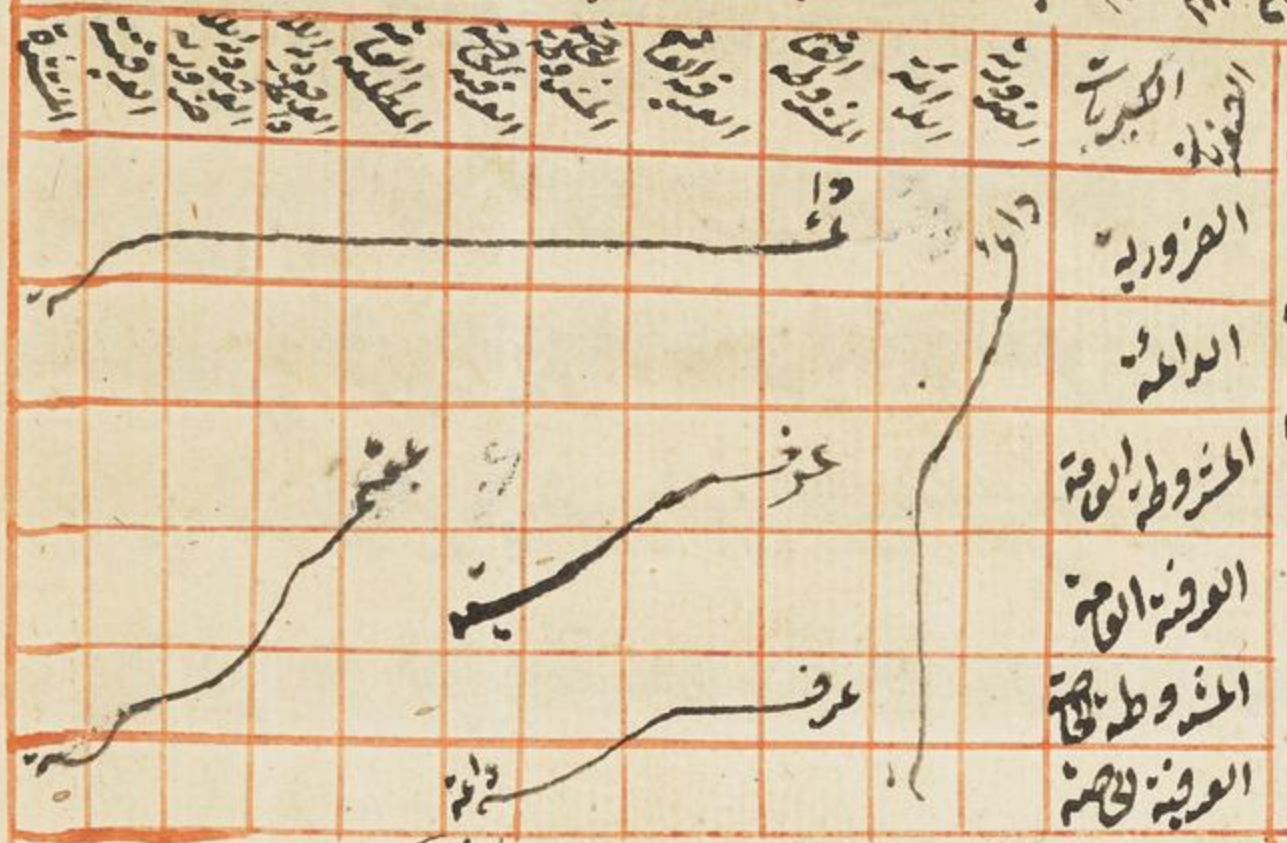 الصغريات الكبريات
الضرورية
الدائمة
المشروطة العامة
العرفية العامة
المشروطة الخاصة
العرفية الخاصة
المطلقة العامة
الوجودية اللا دائمة
الوجودية اللا ضرورية
الوقتية
المنتشرة
الضرورية
دائمة
دائمة
الدائمة
المشروطة العامة
عرفية
العرفية العامة
المشروطة الخاصة
عرفية
العرفية الخاصة
دائمة